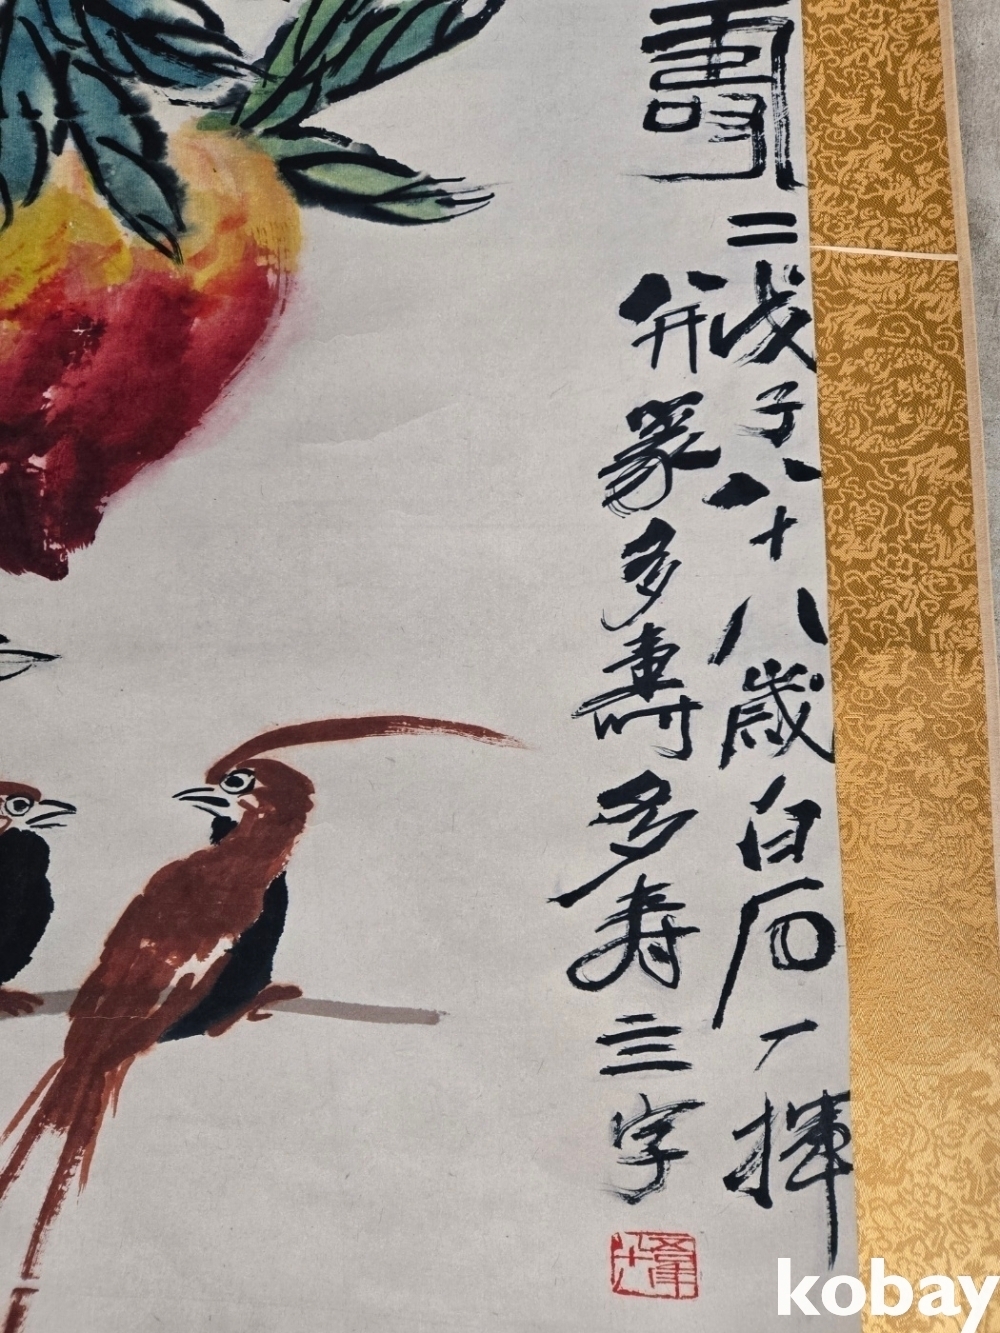 壽
二戊子八十八歲白石一揮
并篆多壽多寿三字
kobay